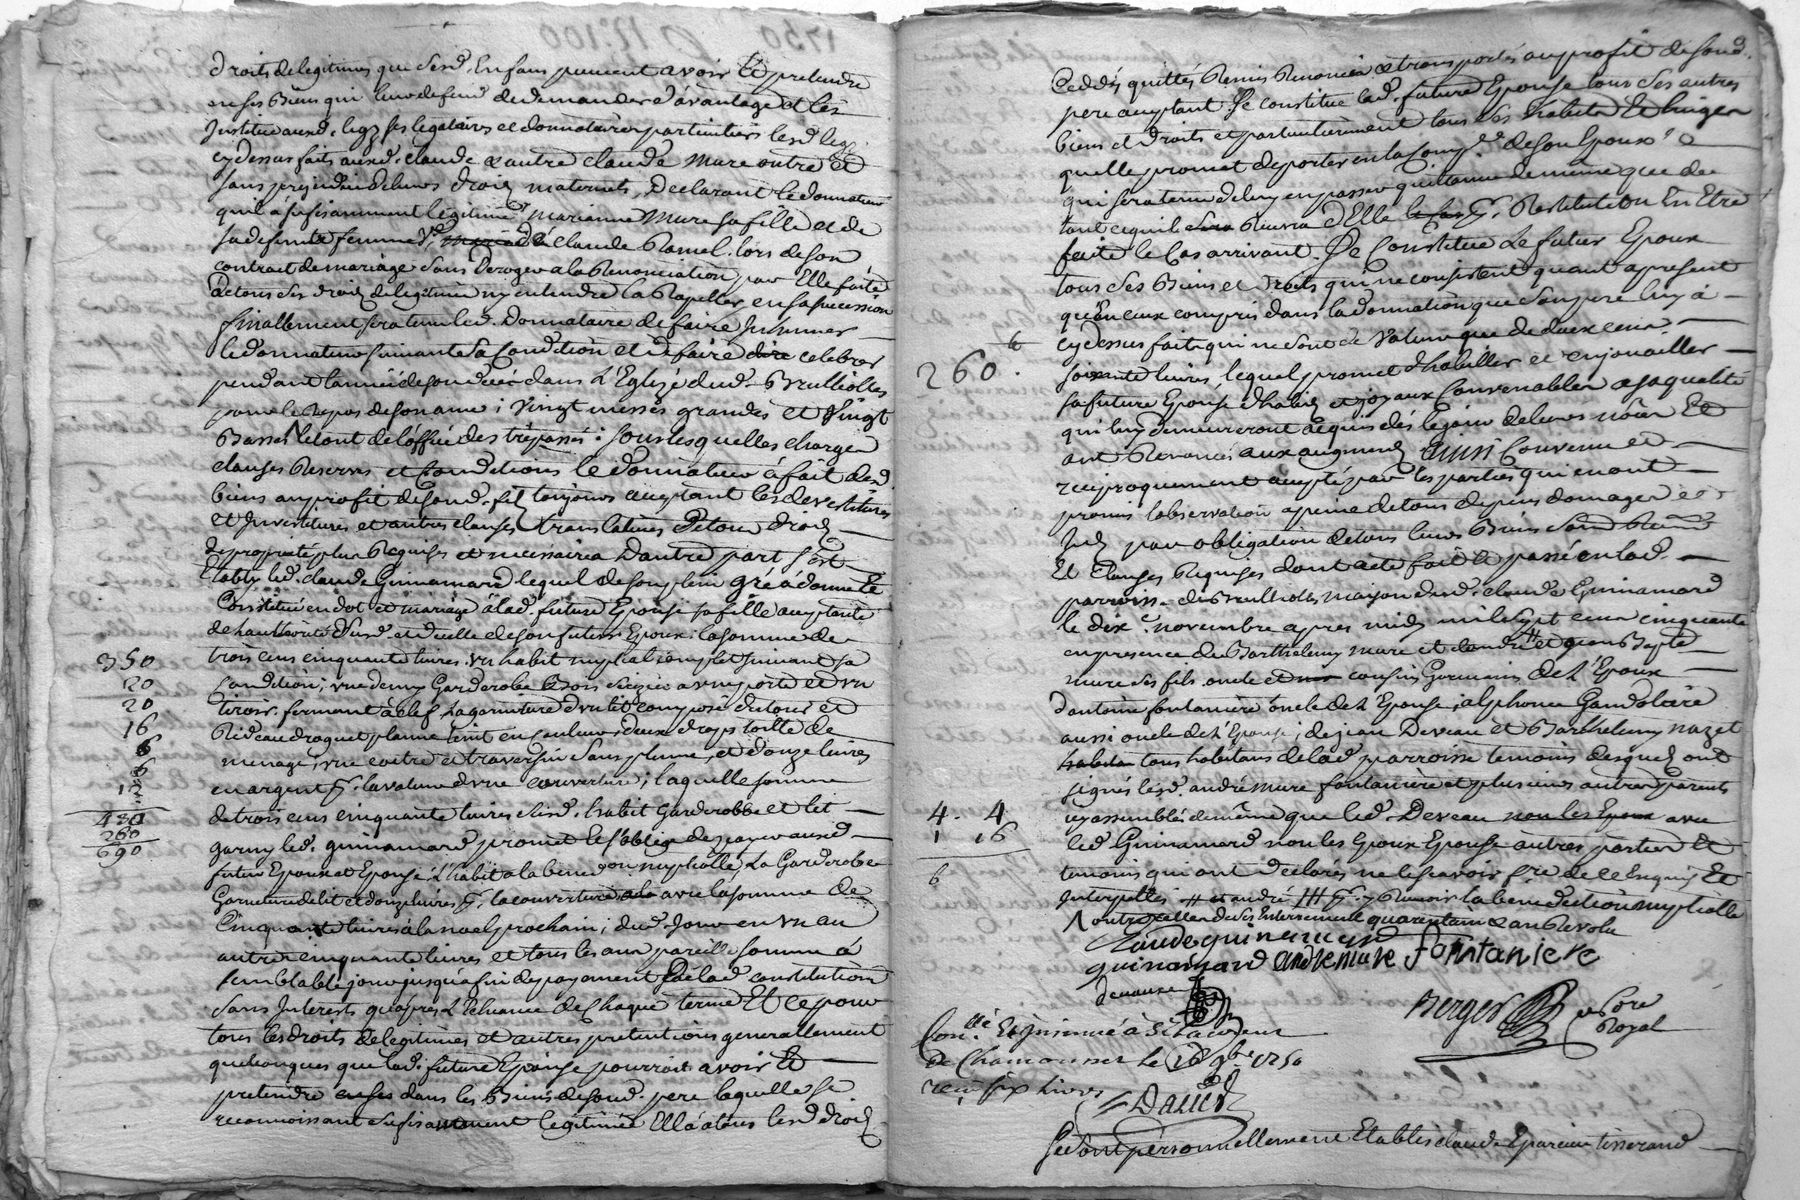 droits de legitimes que sesd. Enfans peuvent avoir Et pretendre
en ses Biens qui leur defend de demander d'avantage et les
Institue auxd. legz ses legataires et donnataires particuliers lesd legz
cy dessus faits auxd. claude & autre claude mure outre et
sans prejudice de leurs droits maternels, Declarant le donnateur
qu'il à sufisamment légitimé marianne mure sa fille et de
sa defunte femme claude Ramel. lors de son
contract de mariage sans Deroger a la Renonciation par Elle faite
de tous ses droits de legitime ny entendre la Rapeller en sa succession
finallement sera tenu led. Donnataire de faire Inhumer
le donnateur suivant sa Condition et de faire dire celebrer
pendant l'année de son decés dans L'Eglize dud. Brullioles
pour le Repos de son ame; Vingt messes grandes et Vingt
Basses le tout de l'office des trépassés: sous lesquelles charges
clauses Reserves et Conditions le donnateur à fait desd.
biens au profit de sond. fils toujours acceptant les devestitures
et Investitures et autres clauses translatives de tous droits
de proprieté plus Requises et necessaires D'autre part s'est
Etably led. claude Guinamard lequel de son plein gré a donné Et
Constitué en dot et mariage à lad. future Epouse sa fille acceptante
de l'authorité dud. et d'icelle de son futur Epoux; la somme de
350 trois cens cinquante livres. un habit nuptial complet suivant sa
20 condition; une demy Garderobe Bois a une porte et un
20 tiroir. fermant à clef La garniture d'un lit composé de tour et
16 Rideau droguet plaine teint en couleur, deux draps toille de
6 menage, une coitre et traversin sans plume, et douze livres
6 en argent pr. la valeur d'une couverture; laquelle somme
12 de trois cens cinquante livres lesd. habit Garderobbe et lit
430 garny led. guinamard promet et s'oblige de payer auxd.
260 futur Epoux et Epouse: L'habit a la benedon. nuptialle, La Garderobe
690 Garniture de lit et douze livres pr. la couverture avec la somme de
Cinquante livres à la noel prochain; dud. Jour en un an
autre cinquante livres et tous les ans pareille somme à
semblable jour jusqu'à fin de payement de lad. constitution
sans Interets qu'après L'Echeance de Chaque terme Et ce pour
tous les droits de legitimes et autres pretentions generallement
quelconques que lad. future Epouse pourroit avoir Et
pretendre dans les Biens de sond. pere laquelle se
reconnoissant sufisamment legitimée Ella alors lesd. droits
Ceddés quittés Remis Renoncés & transportés au profit de sond.
pere acceptant. Se constitue lad. future Epouse tous ses autres
biens et droits et particulierement tous ses habits Et linges
quelle promet de porter en la Compie. de son Epoux
qui sera tenu de luy en passer quittance de même que de
tout ce qu'il Recevra d'Elle pr. Restitution En Etre
faite le Cas arrivant. Se Constitue Le futur Epoux
tous ses Biens et Droits qui ne consistent quant a present
qu'en ceux compris dans la donnation que son pere luy à
cy dessus faite qui ne sont de Valeur que de deux cens
260. soixante livres, lequel promet d'habiller et enjoualler
sa future Epouse d'habits et joyaux Convenables a sa qualité
qui luy demeureront acquis dés le jour de leurs nôces Et
ont Renoncés aux augments Ainsi Convenu et
reciproquement accepté par les parties qui en ont
promis l'observation a peine de tous depens domages et
Ints. par obligation de tous leurs Biens
Et Clauses Requises dont acte fait et passé en lad.
parroisse. de Brullioles maison dud. claude Guinamard
le dixe. novembre apres midy mil sept cens cinquante
en presence de Barthelemy mure et claude et Jean Bapte
mure ses fils oncle et cousins Germains de L'Epoux
d'antoine fontaniere oncle de L'Epouse, alphonce Gandoliere
aussi oncle de L'Epouse; de jean Deveau et Barthelemy nazet
tous habitans de lad. parroisse temoins desquels ont
signés lesd. andré mure fontaniere et plusieurs autres parents
4. 4 icy assemblés de même que led. Deveau non les Epoux avec
1 16 led Guinamard non les Epoux Epouse autres parties Et
6 temoins qui ont declarés ne le scavoir fre. de ce Enquis Et
Interpellés # et andré ### pr. y Recevoir la benediction nuptialle
outre celles de ses Enterrement quarantaine & an Revolu
Claude guinamard
guinamard andre mure fontaniere
devaux
Berger Nore Royal
Conllé. Et insinué à St Laurent
de Chamousset le 1750
recu six livres
Daiud
Se sont personnellement Etablis claude Eparcieu tisserand